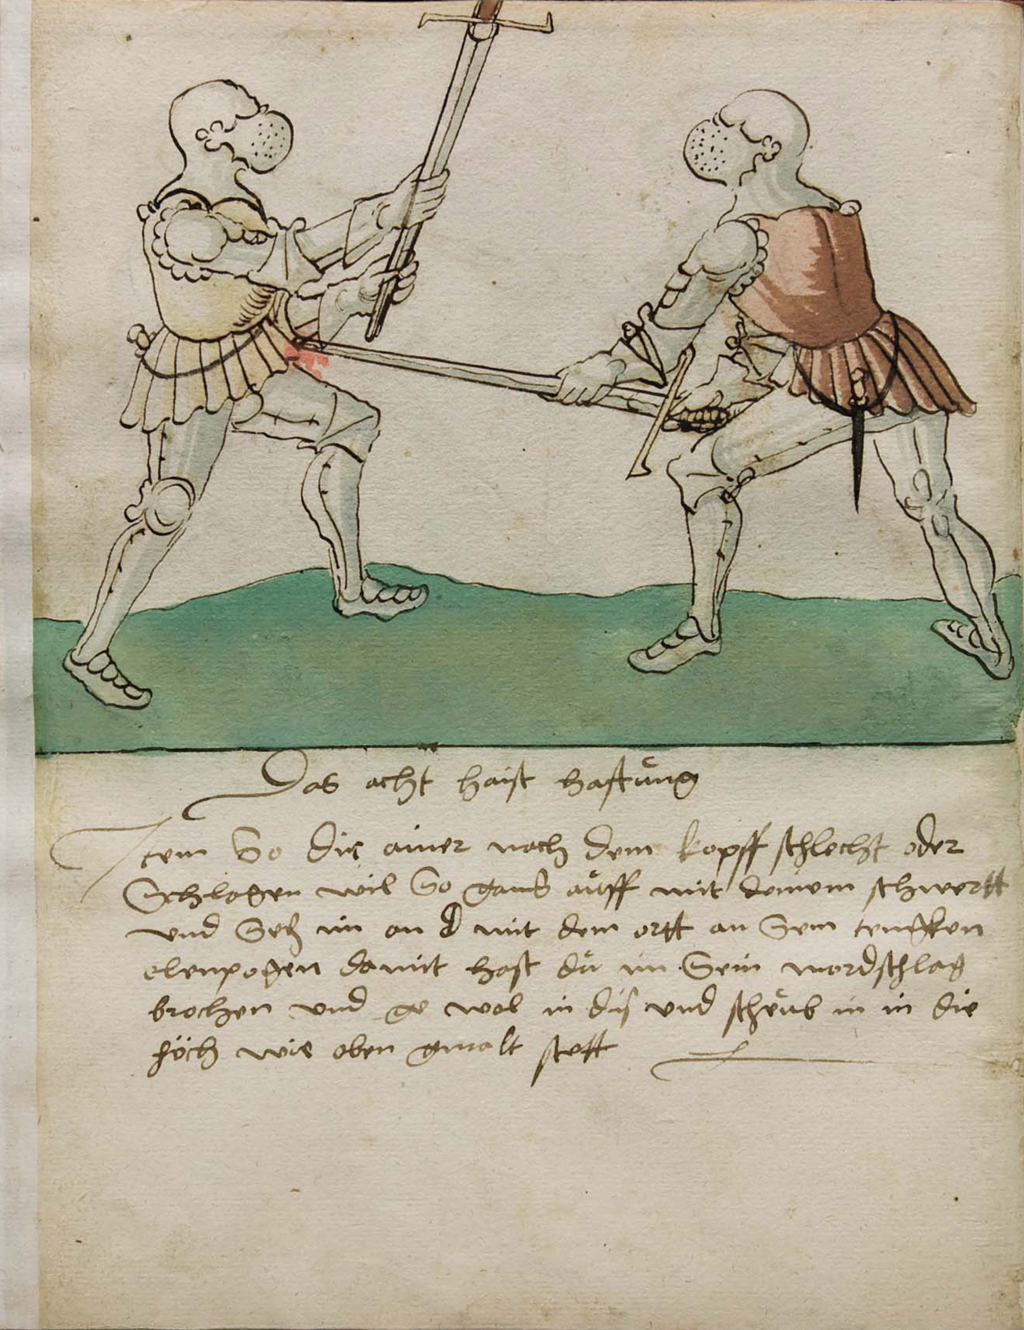 Das acht haist haftūng
Item So dir ainer nach dem kopff schlecht oder
Schlagen wil So gand aūff mit deinem schwertt
vnd Setz im an mit dem ortt an Sein tencken
elenpogen damit hast dū im Sein mordschlag
brochen vnd ge wol in dis vnd scheūb in in die
höch wie oben gmalt stett